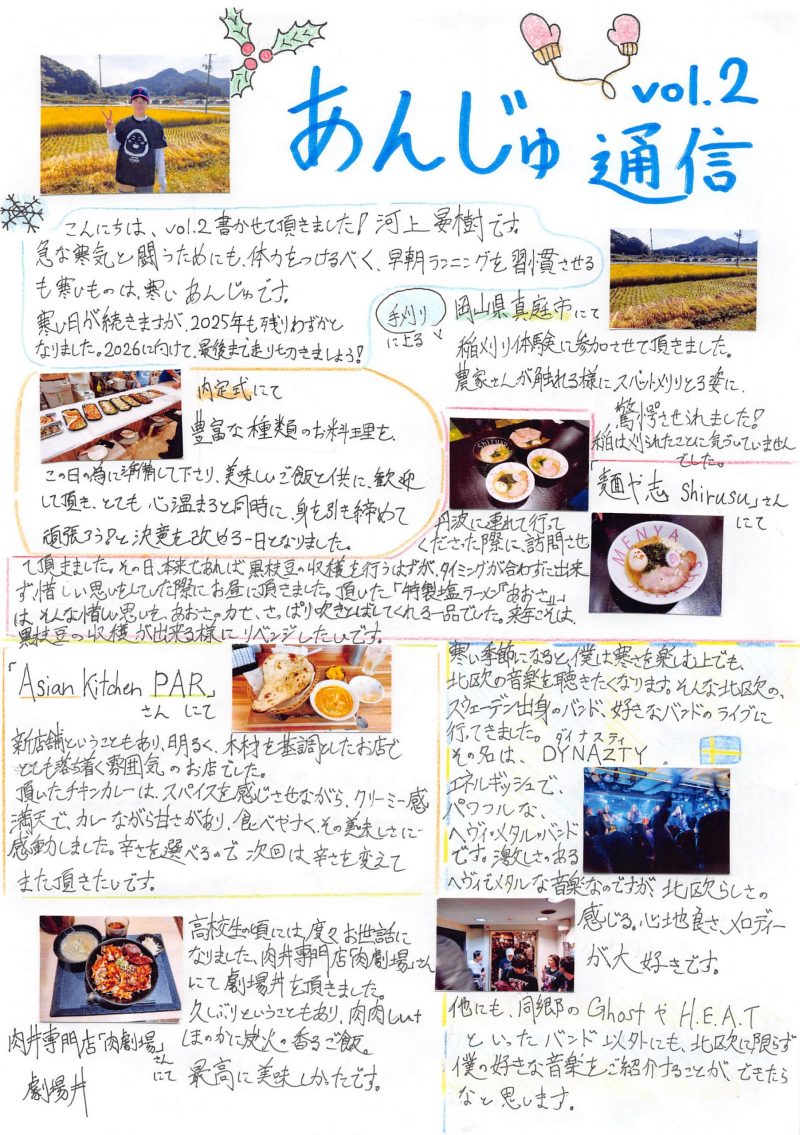 あんじゅ通信
vol.2
こんにちは、vol.2書かせて頂きました！河上晏樹です。
急な寒気と闘うためにも、体力をつけるべく、早朝ランニングを習慣させる
も寒いものは、寒いあんじゅです。
寒い日が続きますが、2025年も残りわずかと
なりました。2026に向けて、最後まで走り切きましょう！
手刈り
による
岡山県真庭市にて
稲刈り体験に参加させて頂きました。
農家さんが触れる様にスパットメリりとる姿に、
驚愕させられました！
稲は刈られたことに気づしていません
でした。
内定式にて
豊富な種類のお料理を、
この日の為に準備して下さり、美味しいご飯と供に、歓迎
して頂き、とても心温まると同時に、身を引き締めて
頑張ろう！と決意を改める一日となりました。
「麺や志 Shirusu」さん
にて
MENYA
丹波に連れて行って
くださった際に、訪問させ
て頂きました。その日、本来であれば黒枝豆の収穫を行うはずが、タイミングが合わずに出来
ず惜しい思いをしていた際にお昼に頂きました。頂いた「特製塩ラーメン『あおさ』」
は、そんな惜しい思いを、あおさの力で、さっぱり吹きとばしてくれる一品でした。来年こそは、
黒枝豆の収穫が出来る様にリベンジしたいです。
「Asian Kitchen PAR」
さん にて
新店舗ということもあり、明るく、木材を基調としたお店で
とても落ち着く雰囲気のお店でした。
頂いたチキンカレーは、スパイスを感じさせながら、クリーミー感
満天で、カレーながら甘さがあり、食べやすく、その美味しさに
感動しました。辛さを選べるので次回は、辛さを変えて
また頂きたいです。
寒い季節になると、僕は寒さを楽しむ上でも、
北欧の音楽を聴きたくなります。そんな北欧の、
スウェーデン出身のバンド、好きなバンドのライブに
行ってきました。
ダイナスティ
その名は、DYNAZTY。
エネルギッシュで、
パワフルな、
ヘヴィ・メタルのバンド
です。激しさのある
ヘヴィでメタルな音楽なのですが、北欧らしさの
感じる。心地良さ、メロディー
が大好きです。
他にも、同郷のGhostやH.E.A.T
といったバンド以外にも、北欧に限らず
僕の好きな音楽をご紹介することが、できたら
なと思します。
高校生の頃には、度々お世話に
なりました、肉丼専門店「肉劇場」さん
にて劇場丼を頂きました。
久しぶりということもあり、肉肉しい+
ほのかに炭火の香るご飯。
最高に美味しかったです。
肉丼専門店「肉劇場」
さん
にて
劇場丼